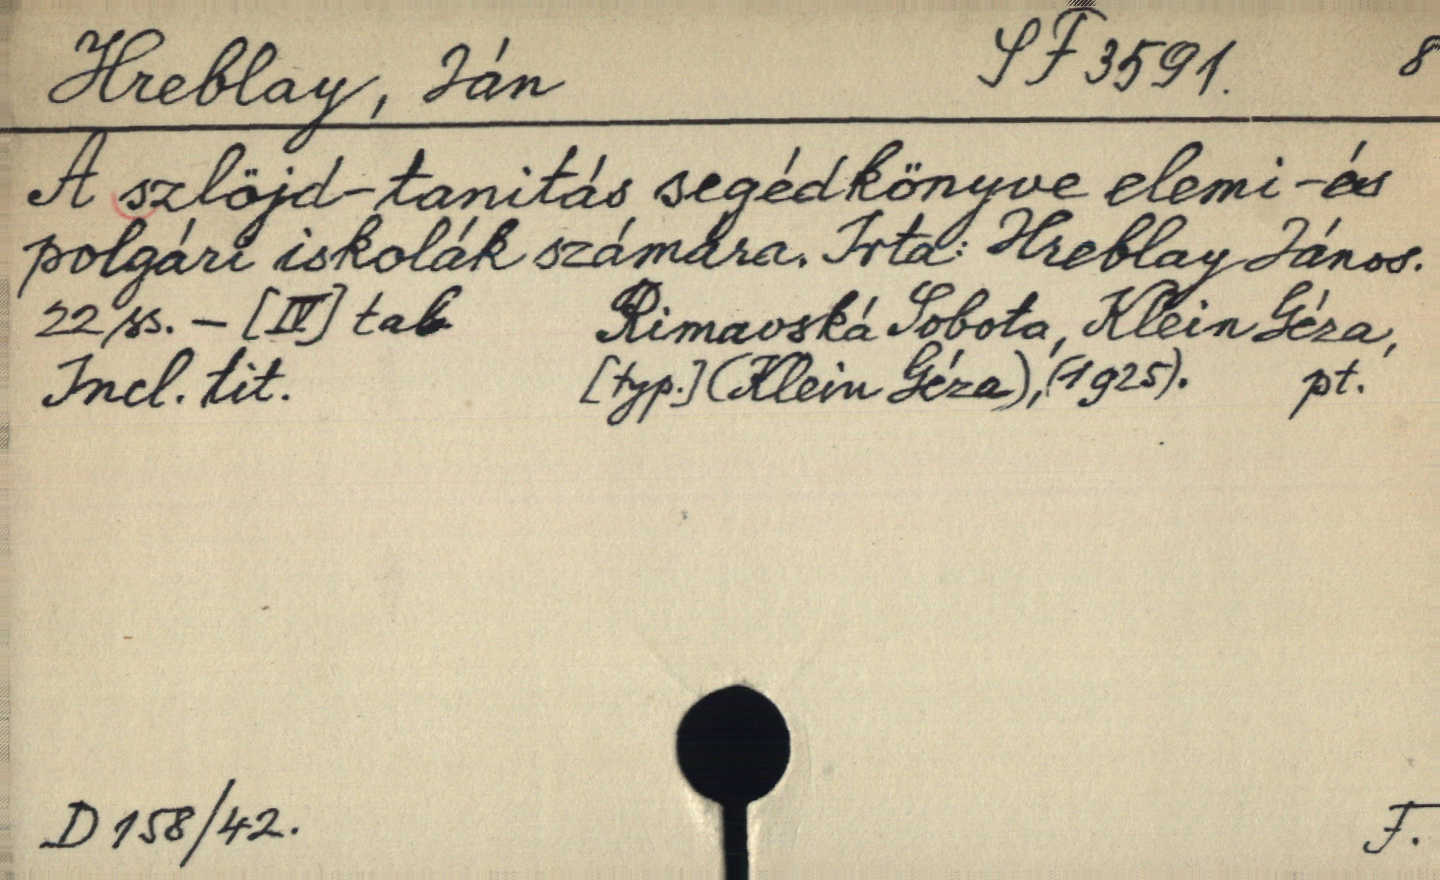 Hreblay, Ján SF 3591. 8
A szlöjd-tanitás segédkönyve elemi-és
polgári iskolák számára. Irta: Hreblay János.
22 ss. - [IV] tab Rimavská Sobota, Klein Géza,
Incl. tit. [typ.] (Klein Géza), (1925). pt.
D 158/42. F.